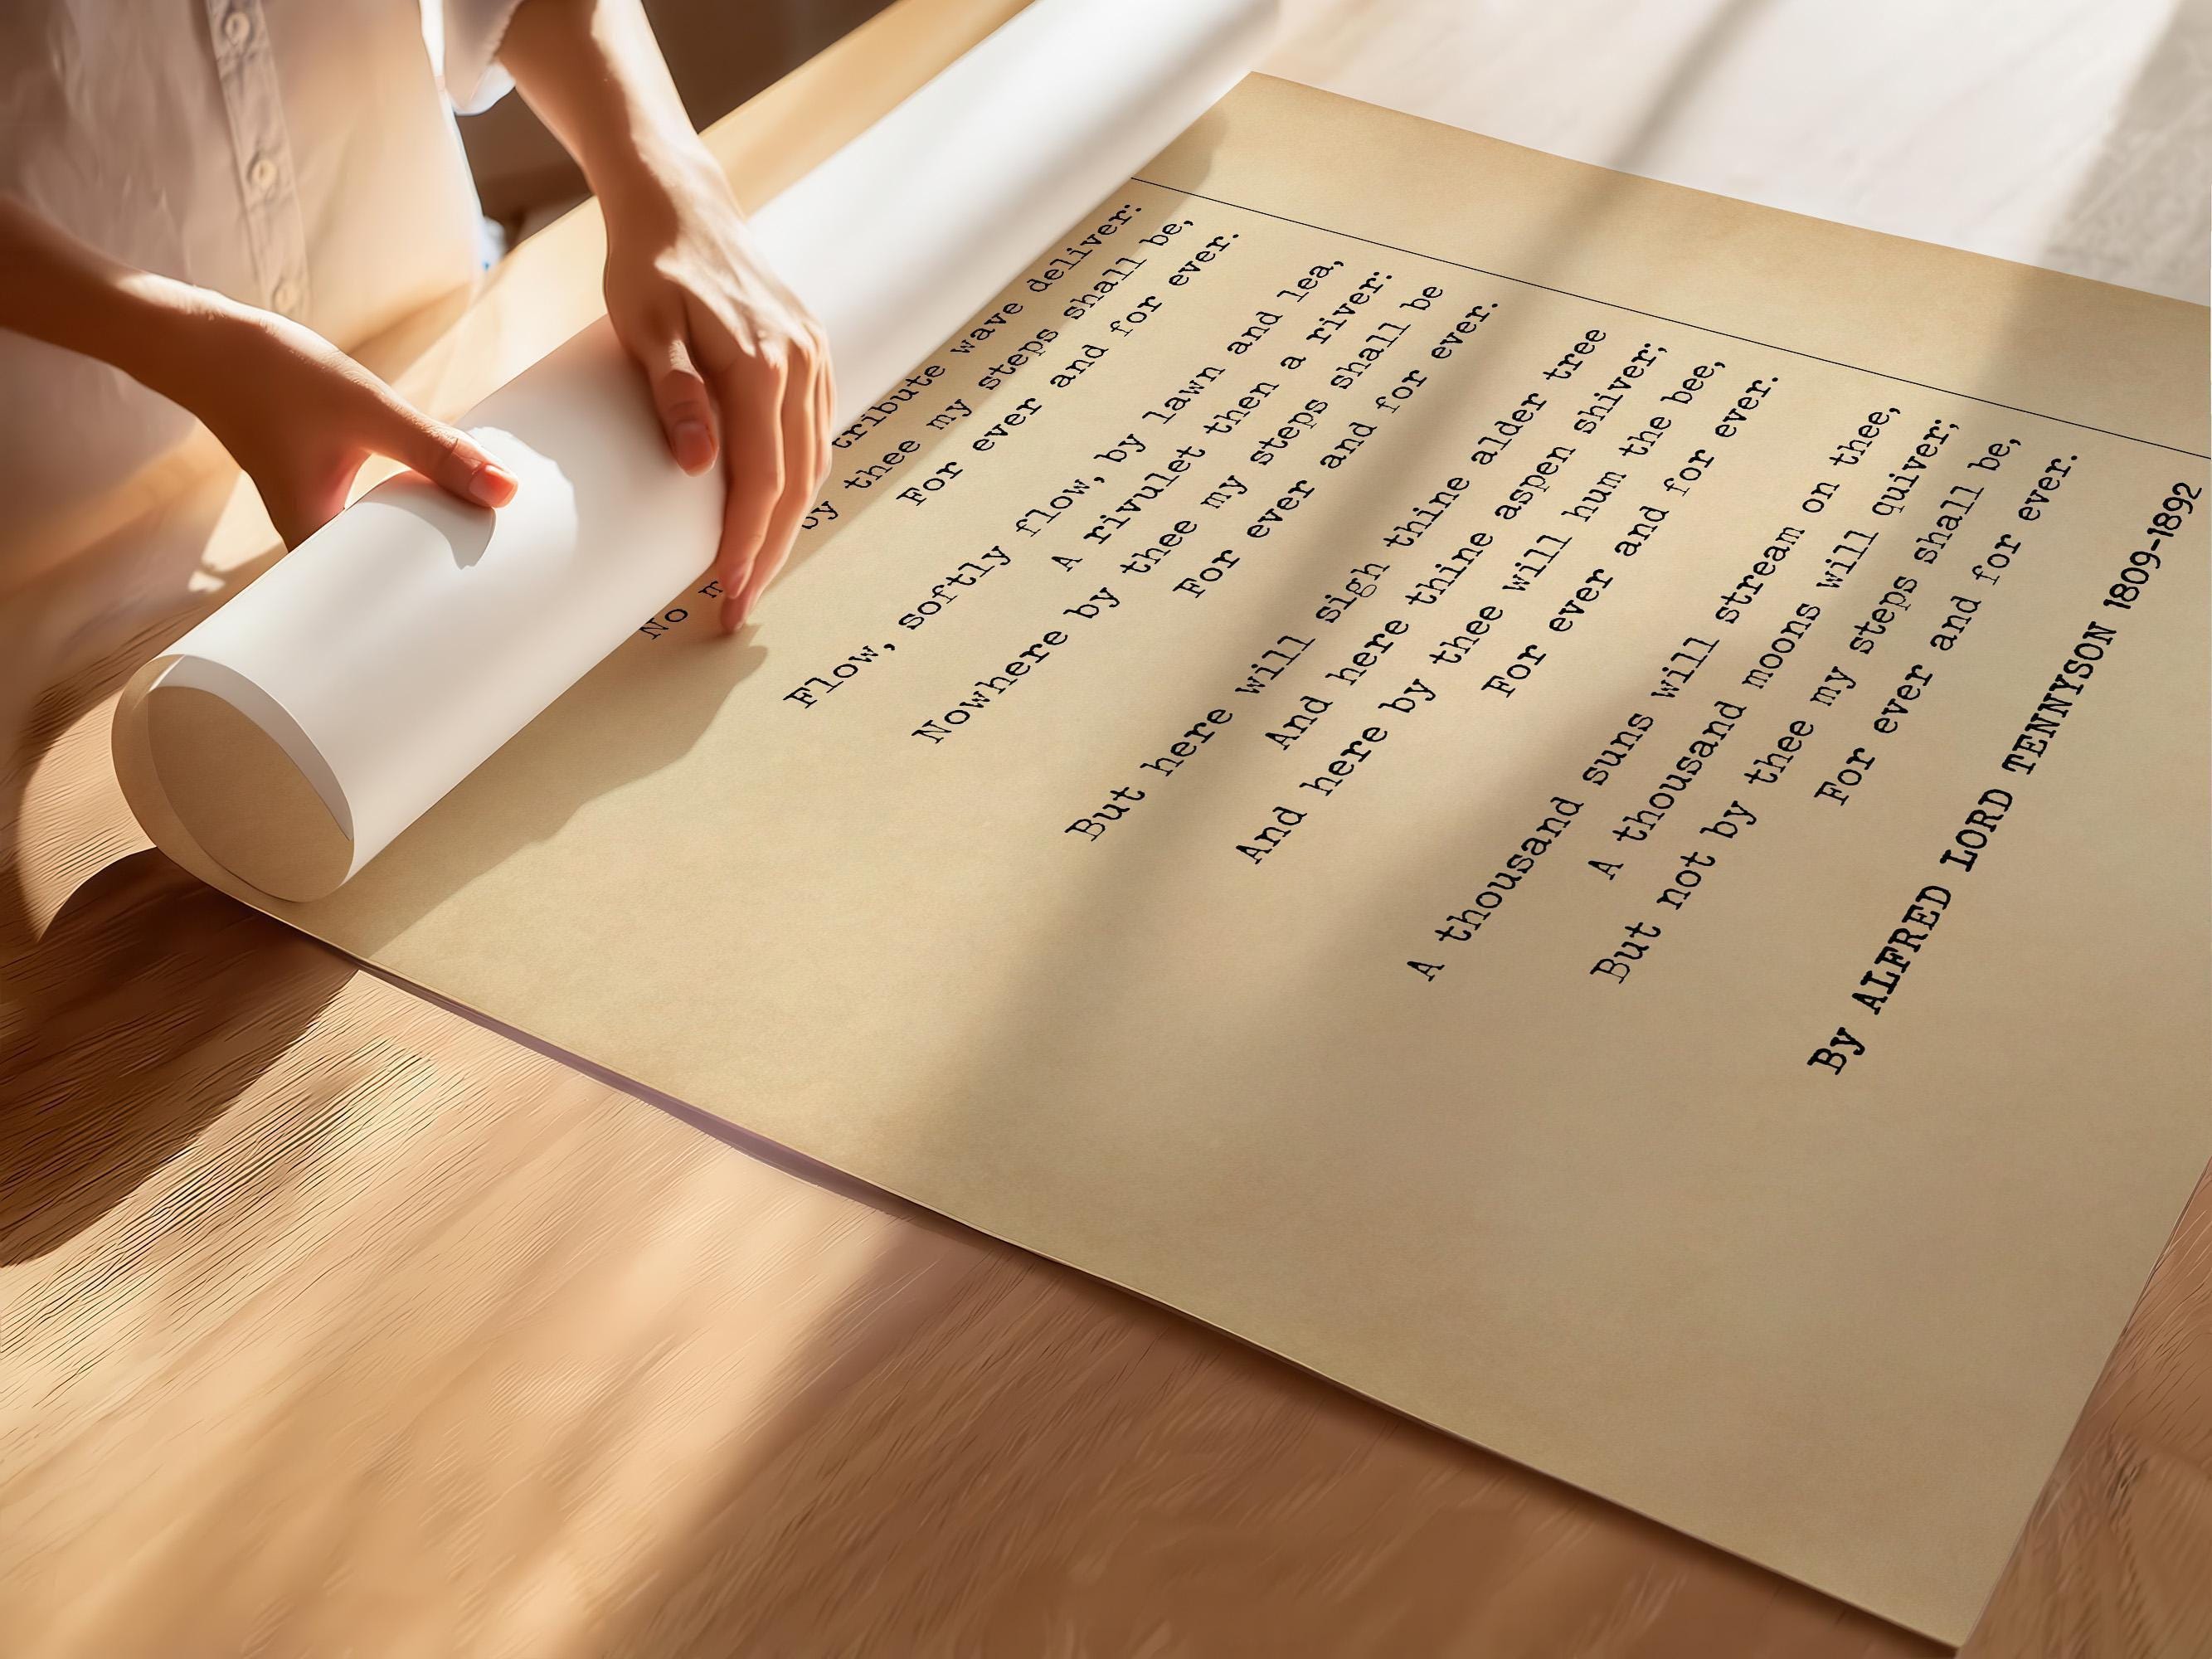 tribute wave deliver:
No by thee my steps shall be,
For ever and for ever.
Flow, softly flow, by lawn and lea,
A rivulet then a river:
Nowhere by thee my steps shall be
For ever and for ever.
But here will sigh thine alder tree
And here thine aspen shiver;
And here by thee will hum the bee,
For ever and for ever.
A thousand suns will stream on thee,
A thousand moons will quiver;
But not by thee my steps shall be,
For ever and for ever.
By ALFRED LORD TENNYSON 1809-1892